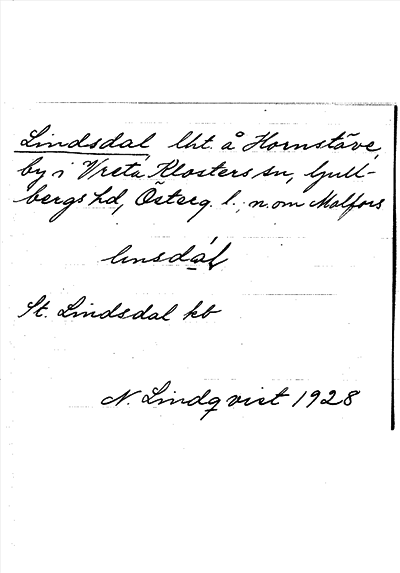 Lindsdal lht. å Hornstäve,
by i Vreta Klosters sn, Gull-
bergs hd, Österg. l., n. om Malfors
linsdál
St. Lindsdal kb
N. Lindqvist 1928